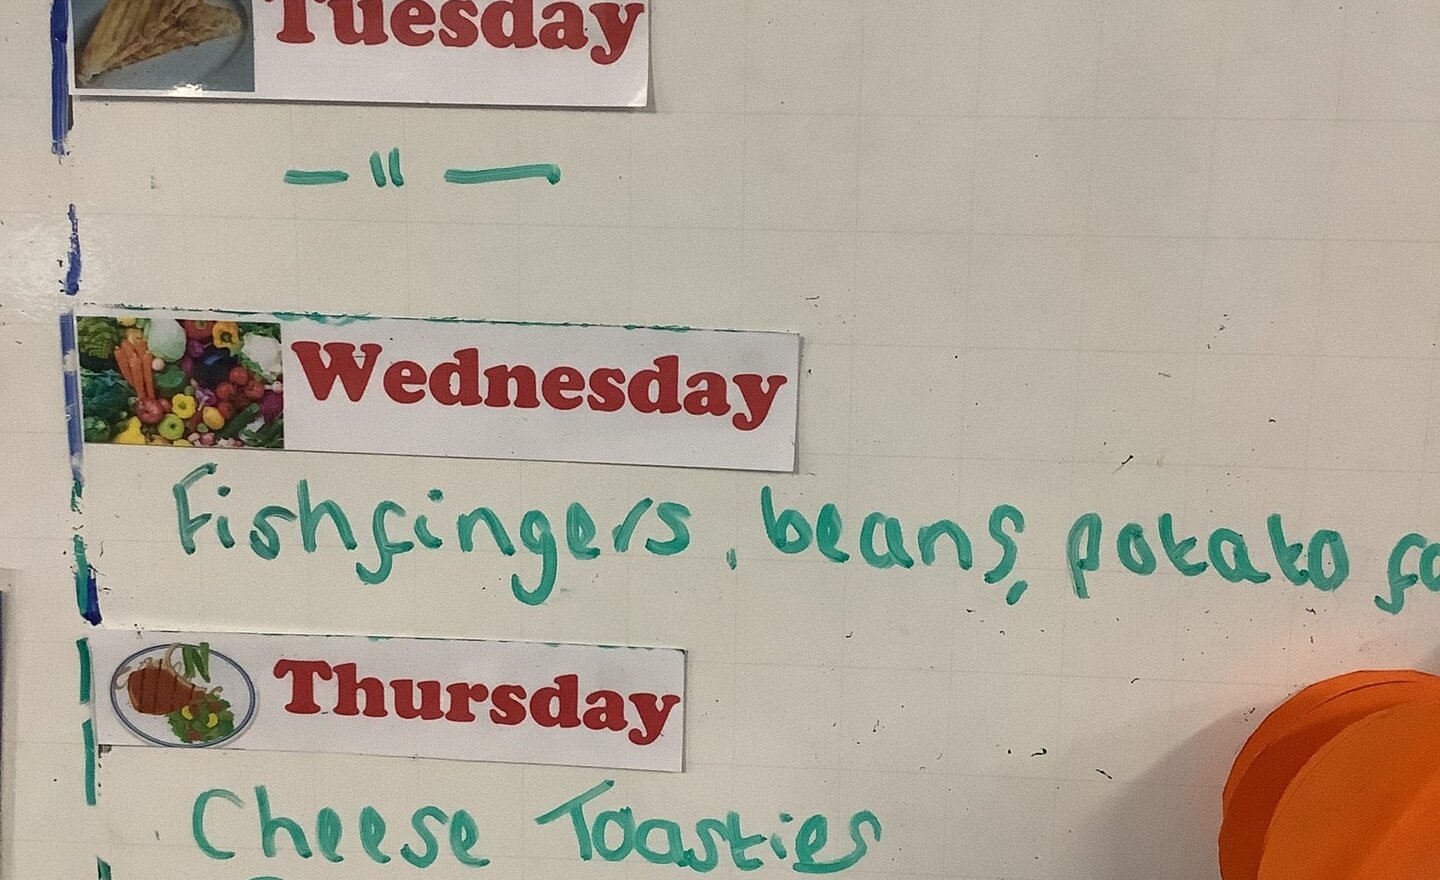 Tuesday
— " —
Wednesday
Fishfingers, beans, potato
Thursday
Cheese Toasties